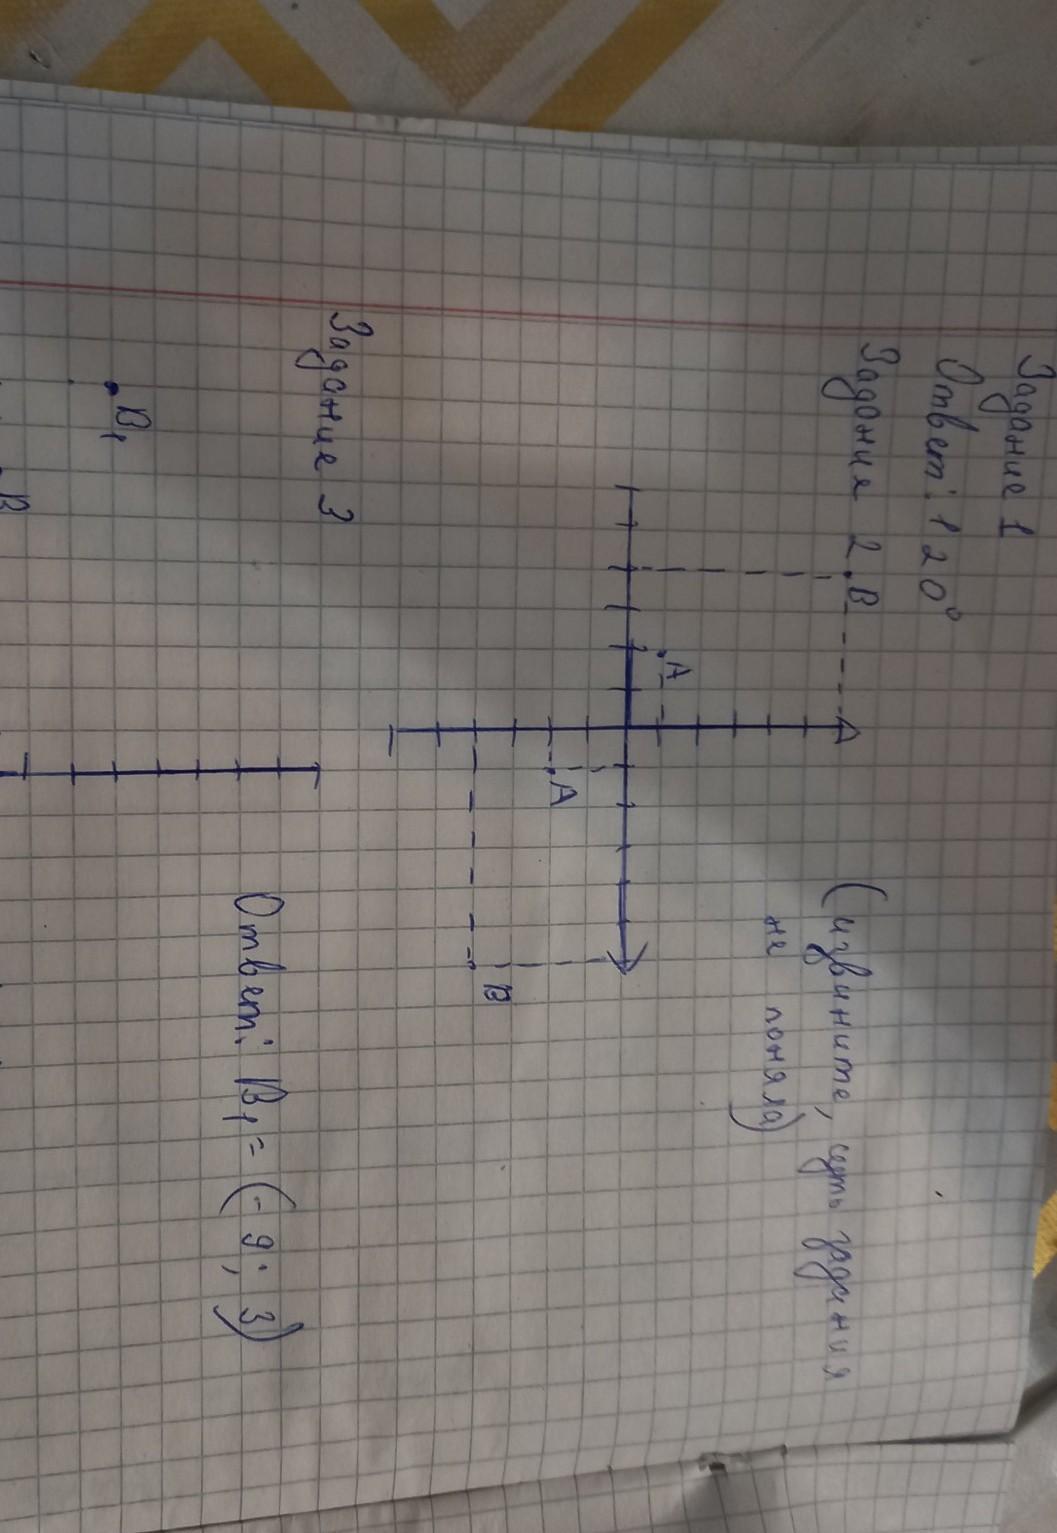 Задание 1
Ответ: 120°
Задания 2
B
A
A
B
(извините, суть задания
не поняла)
Задание 3
B₁
B
Ответ: B₁ = (-9; 3)